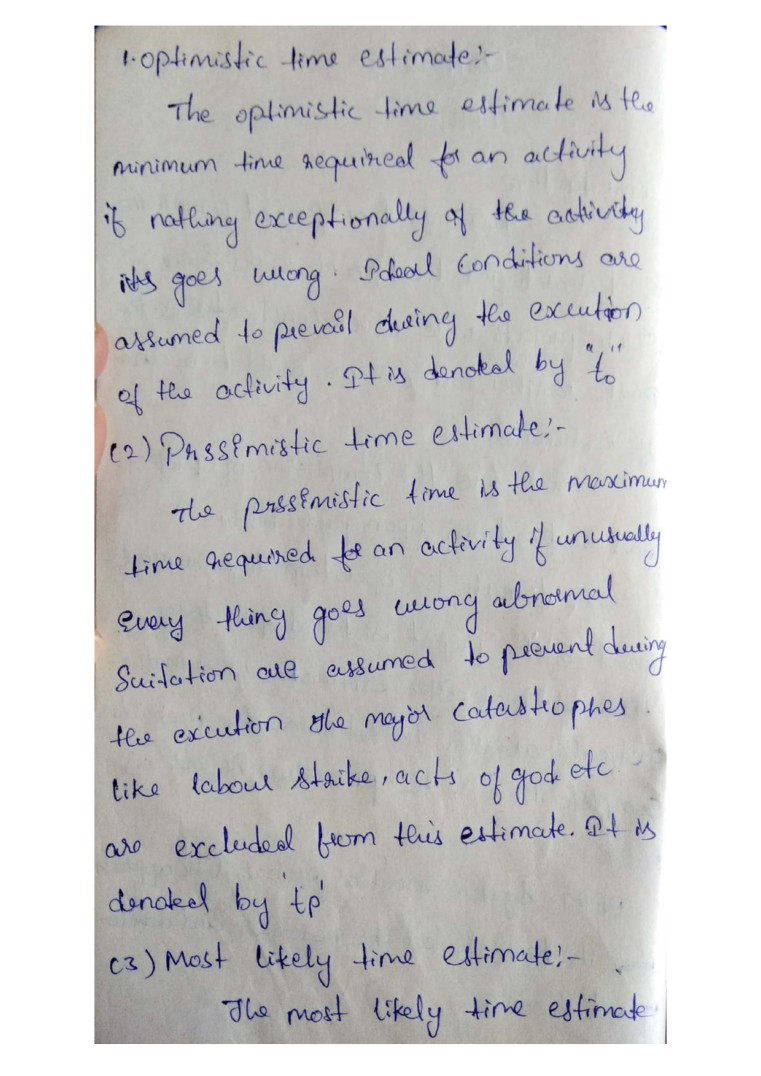 1. Optimistic time estimate:-
The optimistic time estimate is the
minimum time required for an activity
if nathing exceptionally of the activity
its goes wrong. Ideal Conditions are
assumed to prevail during the excution
of the activity. It is denoted by "to"
(2) Prssimistic time estimate:-
The prssimistic time is the maximum
time required for an activity if unusually
Every thing goes wrong abnormal
Suitation are assumed to prevent during
the excution the major Catastrophes.
like labour strike, acts of god etc
are excluded from this estimate. It is
denoted by 'tp'
(3) Most likely time estimate:-
The most likely time estimate